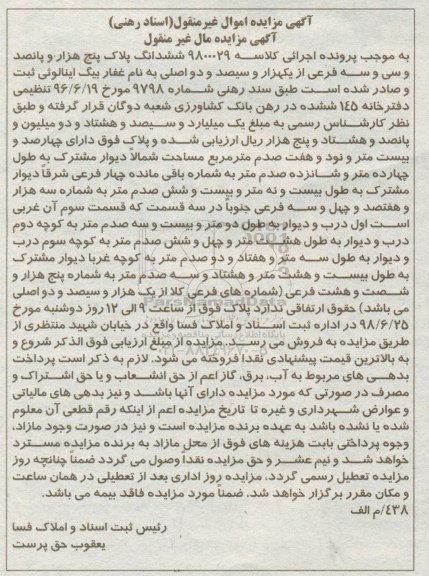 آگهی مزایده اموال غیرمنقول(اسناد رهنی)
آگهی مزایده مال غیر منقول
به موجب پرونده اجرائی کلاسه ۹۸۰۰۰۲۹ ششدانگ پلاک پنج هزار و پانصد
و سی و سه فرعی از یکهزار و سیصد و دو اصلی به نام غفار بیگ اینالوئی ثبت
و صادر شده است طبق سند رهنی شماره ۹۷۹۸ مورخ ۹۶/۶/۱۹ تنظیمی
دفترخانه ۱۴۵ ششده در رهن بانک کشاورزی شعبه دوگان قرار گرفته و طبق
نظر کارشناس رسمی به مبلغ یک میلیارد و سیصد و هشتاد و دو میلیون و
پانصد و هشتاد و پنج هزار ریال ارزیابی شده و پلاک فوق دارای چهارصد و
بیست متر و نود و هفت صدم مترمربع مساحت شمالاً دیوار مشترک به طول
چهارده متر و شانزده صدم متر به شماره باقی مانده چهار فرعی شرقاً دیوار
مشترک به طول بیست و نه متر و بیست و شش صدم متر به شماره سه هزار
و هفتصد و چهل و سه فرعی جنوباً در سه قسمت که قسمت سوم آن غربی
است اول درب و دیوار به طول دو متر و بیست و سه صدم متر به کوچه دوم
درب و دیوار به طول هشت متر و چهل و شش صدم متر به کوچه سوم درب
و دیوار به طول سه متر و هفتاد و دو صدم متر به کوچه غرباً دیوار مشترک
به طول بیست و هشت متر و هشتاد و سه صدم متر به شماره پنج هزار و
شصت و هشت فرعی (شماره های فرعی کلا از یک هزار و سیصد و دو اصلی
می باشد) حقوق ارتفاقی ندارد پلاک فوق از ساعت ۹ الی ۱۲ روز دوشنبه مورخ
۹۸/۶/۲۵ در اداره ثبت اسناد و املاک فسا واقع در خیابان شهید منتظری از
طریق مزایده به فروش می رسد. مزایده از مبلغ ارزیابی فوق الذکر شروع و
به بالاترین قیمت پیشنهادی نقداً فروخته می شود. لازم به ذکر است پرداخت
بدهی های مربوط به آب، برق، گاز اعم از حق انشعاب و یا حق اشتراک و
مصرف در صورتی که مورد مزایده دارای آنها باشد و نیز بدهی های مالیاتی
و عوارض شهرداری و غیره تا تاریخ مزایده اعم از اینکه رقم قطعی آن معلوم
شده یا نشده باشد به عهده برنده مزایده است و نیز در صورت وجود مازاد،
وجوه پرداختی بابت هزینه های فوق از محل مازاد به برنده مزایده مسترد
خواهد شد و نیم عشر و حق مزایده نقداً وصول می گردد ضمناً چنانچه روز
مزایده تعطیل رسمی گردد، مزایده روز اداری بعد از تعطیلی در همان ساعت
و مکان مقرر برگزار خواهد شد. ضمناً مورد مزایده فاقد بیمه می باشد.
۴۳۸/م الف
رئیس ثبت اسناد و املاک فسا
یعقوب حق پرست